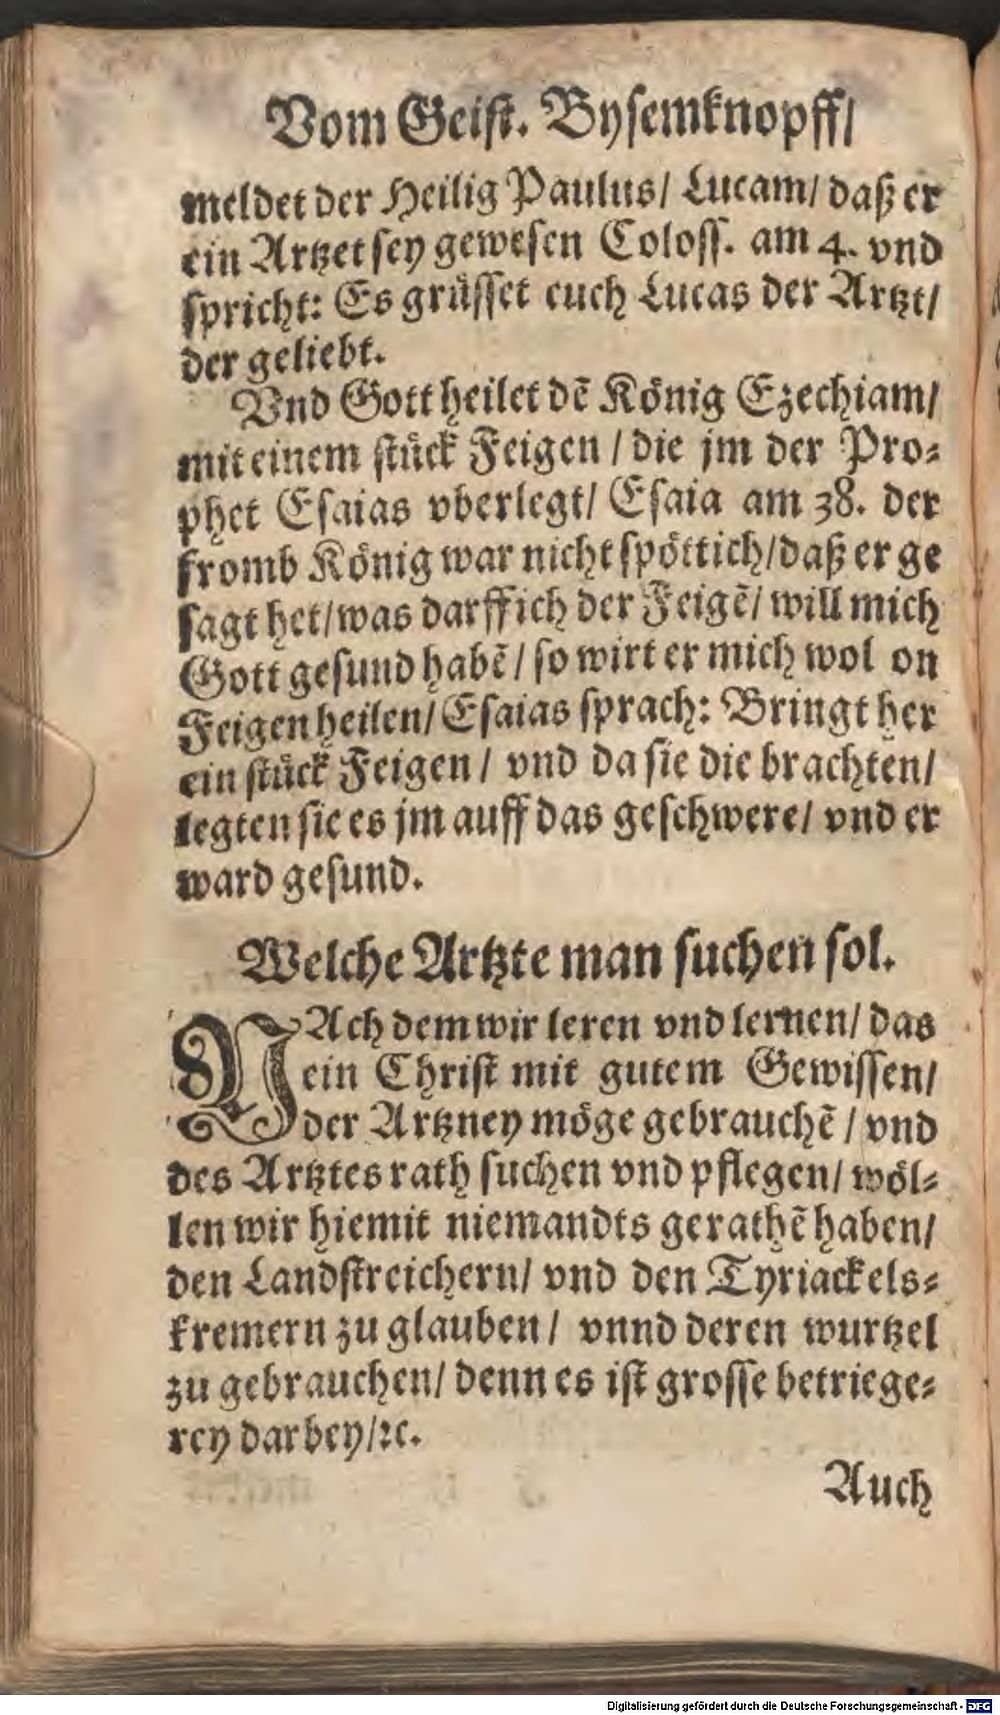 Vom Geiſt. Byſemknopff/
meldet der Heilig Paulus/ Lucam/ daß er
ein Artzet ſey geweſen Coloſſ. am 4. vnd
ſpricht: Es grüſſet euch Lucas der Artzt/
der geliebt.
Vnd Gott heilet dẽ König Ezechiam/
mit einem ſtück Feigen / die jm der Pro-
phet Eſaias vberlegt/ Eſaia am 38. der
fromb König war nicht ſpöttich/ daß er ge
ſagt het/ was darff ich der Feigẽ/ will mich
Gott geſund habẽ/ ſo wirt er mich wol on
Feigen heilen/ Eſaias ſprach: Bringt her
ein ſtück Feigen / vnd da ſie die brachten/
legten ſie es jm auff das geſchwere/ vnd er
ward geſund.
Welche Artzte man ſuchen ſol.
NAch dem wir leren vnd lernen/ das
ein Chriſt mit gutem Gewiſſen/
der Artzney möge gebrauchẽ / vnd
des Artztes rath ſuchen vnd pflegen/ wöl-
len wir hiemit niemandts gerathẽ haben/
den Landſtreichern/ vnd den Tyriackels-
kremern zu glauben / vnnd deren wurtzel
zu gebrauchen/ denn es iſt groſſe betriege-
rey darbey/ ꝛc.
Auch
Digitalisierung gefördert durch die Deutsche Forschungsgemeinschaft - DFG